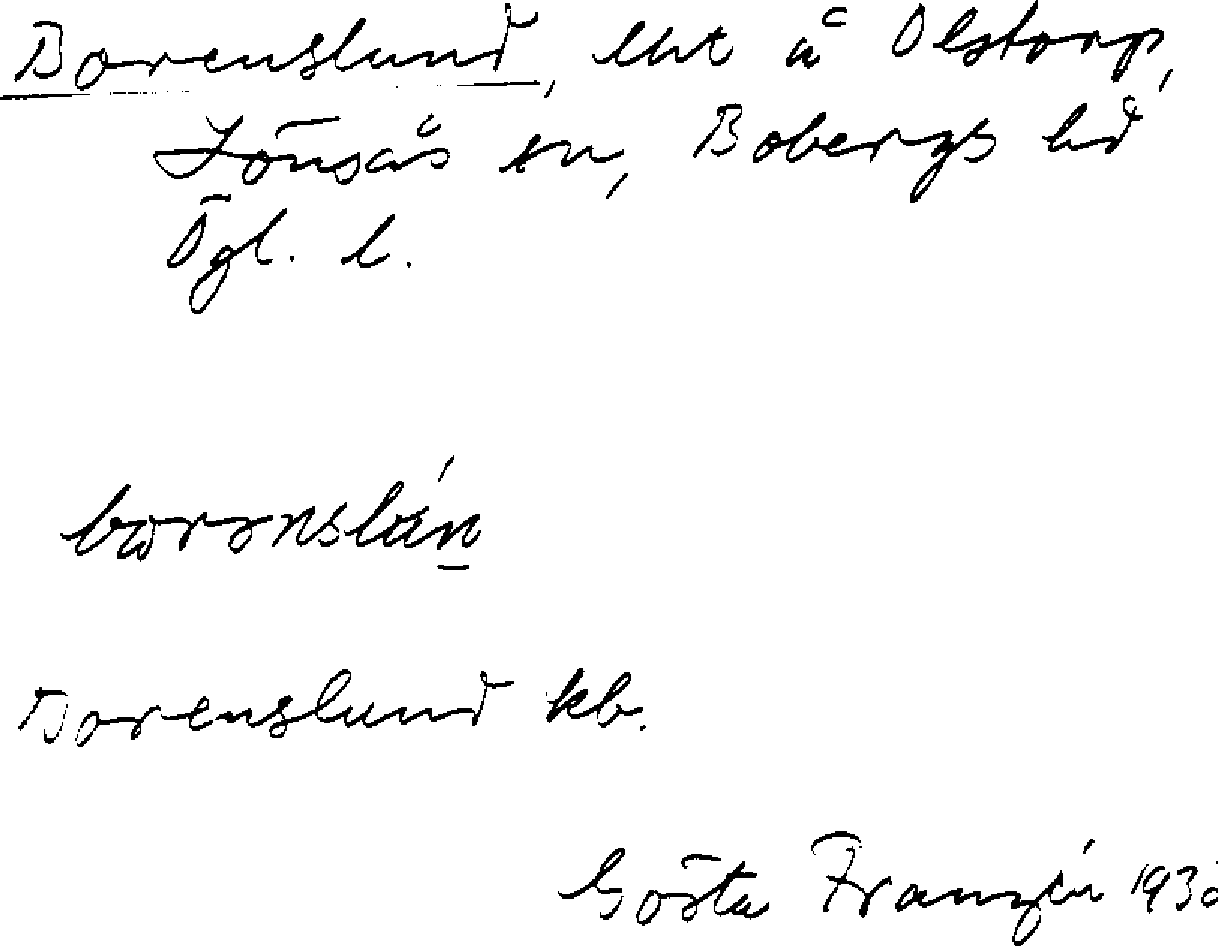 Borenslund, lht å Olstorp,
Lönsås sn, Bobergs hd
Ögl. l.
borənslún
Borenslund kb.
Gösta Franzén